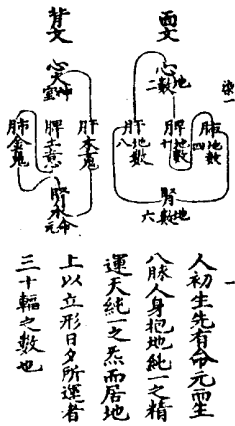 染一
面文
心地數二
肺地數四
脾地數十
肝地數八
腎地數六
背文
心火神室
肝木魂
脾土意
肺金魄
腎水命元
一
人初生先有命元而生
八脉人身抱地純一之精
運天純一之炁而居地
上以立形日夕所運者
三十輻之數也